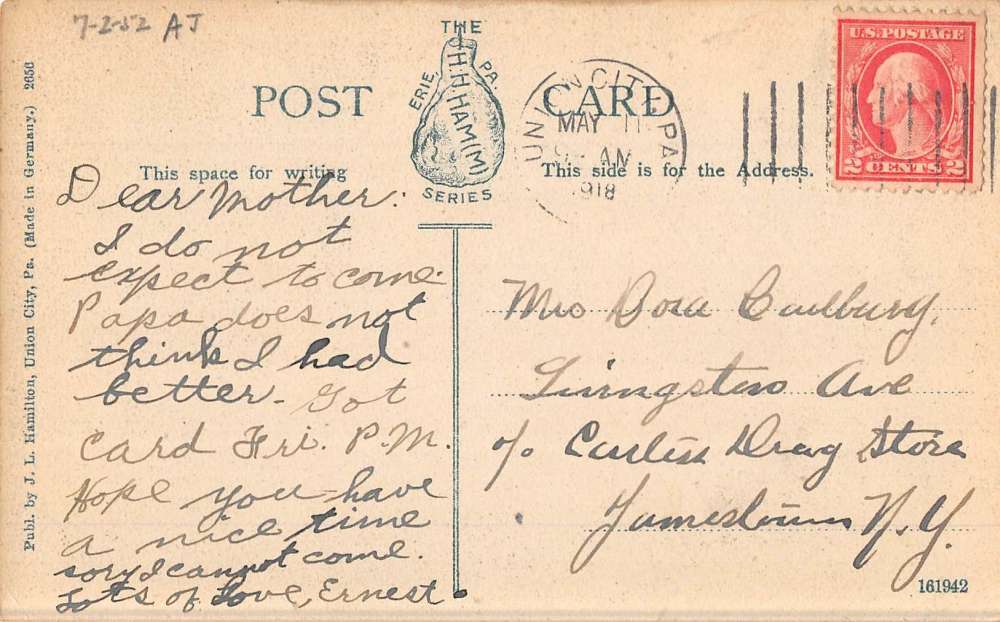 7-2-52 AJ
THE
H.H.HAM(M)
ERIE, PA.
SERIES
POST CARD
UNION CITY PA
MAY 11
AM
1918
U.S. POSTAGE
2 CENTS 2
This space for writing
This side is for the Address.
Dear Mother:
I do not
expect to come.
Papa does not
think I had
better. Got
card Fri. P.M.
Hope you have
a nice time
sory I cannot come.
Lots of Love, Ernest.
Mrs
Livingston Ave
c/o Drug Store
Jamestown N.Y.
161942
Publ. by J. L. Hamilton, Union City, Pa. (Made in Germany.) 2656